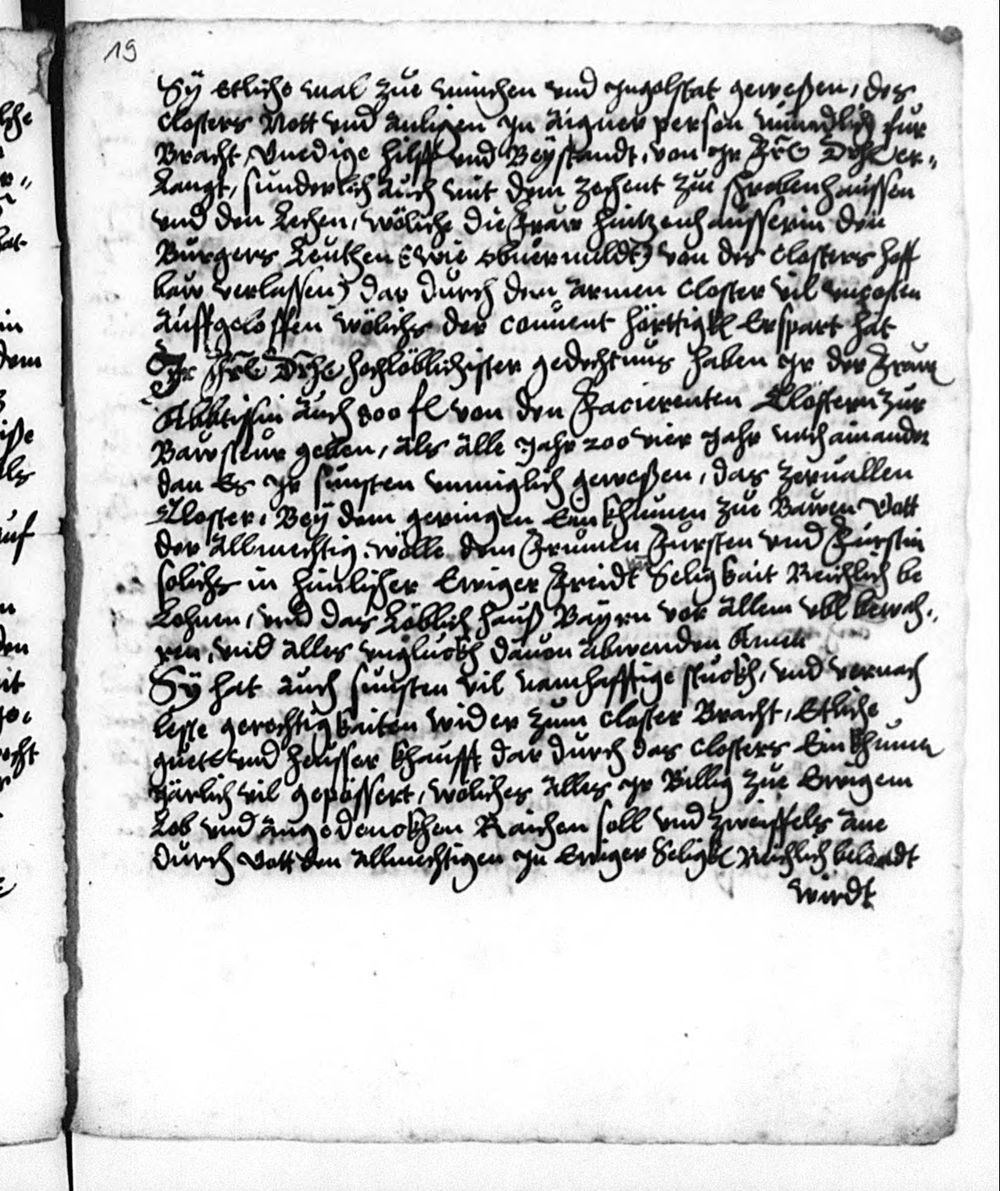 19
Sÿ etliche mal zue münchen und Ingolstat geweßen, des
closters Nott und anligen In aigner person mundlich für
Bracht, gnedige hilff und Beÿstandt, von Ir Frl Drhl er-,
Langt, sunderlich auch mit dem zechent zue Schrobenhaussen
und den Lechen, wöliche die Fraw hintzenhausserin den
Burgers Leuthen (wie obuermeldt) von des closters hoff
baw verlassen) dar durch dem armen closter vil uncosten
auffgeloffen wölichs der conuent hörttigkl Erspart hat
Ir Frl Drhl hochlöblichister gedechtnus haben Ir der Frauen
Abbtissin auch 800 fl von den Facierenten Clöstern zur
Bawsteur geben, als alle Jahr 200 vier Jahr nach ainander
dan Es Ir sunsten unmiglich geweßen, das zeruallen
Closter, Beÿ dem geringen Einkhumen zue Bawen Gott
der Allmechtig wölle dem Frumen Fürsten und Fürstin
solichs in himlischer Ewiger Freidt Seligkait Reichlich be
Lohnen, und das Löblich hauß Bayrn vor allem ubl bewah,
ren, und alles unglückh dauon abwenden Amen
Sÿ hat auch sunsten vil namhafftige stuckh, und vernach
leste gerechtigkaiten wider zum closter Bracht, Etliche
güeter und heusser khaufft dar durch das closters Einkhumen
Järlich vil gepössert, wöliches alles Ir Billig zue Ewigem
Lob und angedenckhen Raichen soll und zweiffels ane
durch Gott den allmechtigen In Ewiger Seligkl Reichlich belondt
wirdt